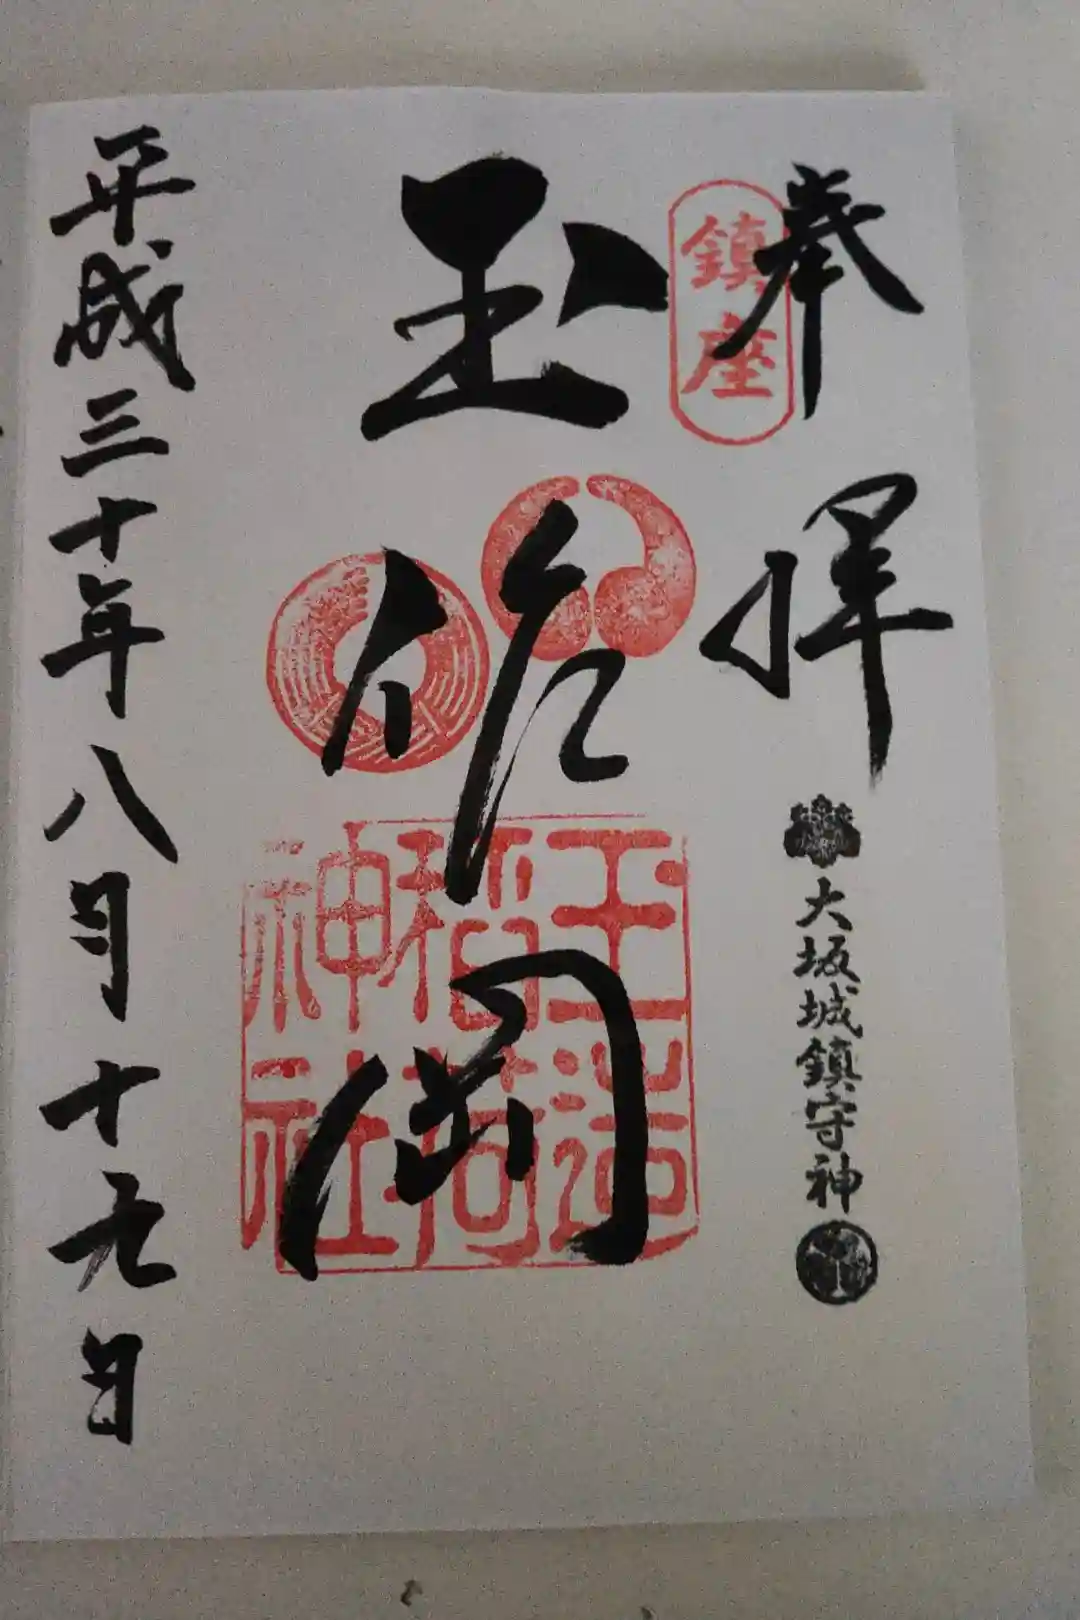 奉拝
大坂城鎮守神
鎮座
玉作岡
玉造
稲荷
神社
平成三十年八月十九日